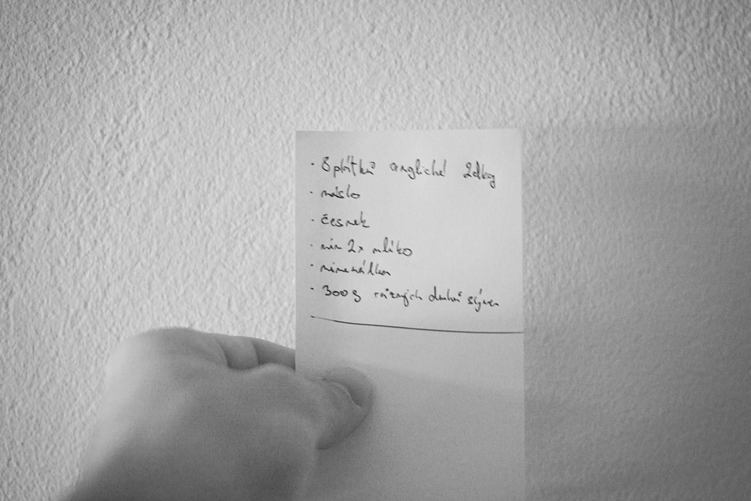 · 8 plátků anglické
· máslo
· česnek
· min 2x mléko
· minerálka
· 300g různých druhů sýrů